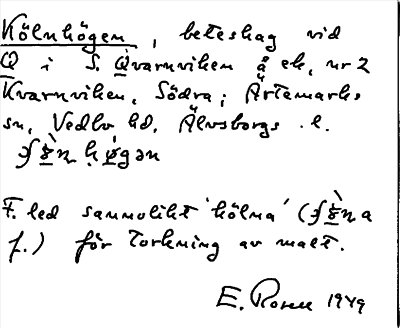 Kölnhögen, beteshag vid
Q i S. Qvarnviken å ek, nr 2
Kvarnviken, Södra; Ärtemarks
sn, Vedbo hd, Älvsborgs l.
högən
F. led sannolikt 'kölna' (
f.) för torkning av malt.
E. Rosell 1949